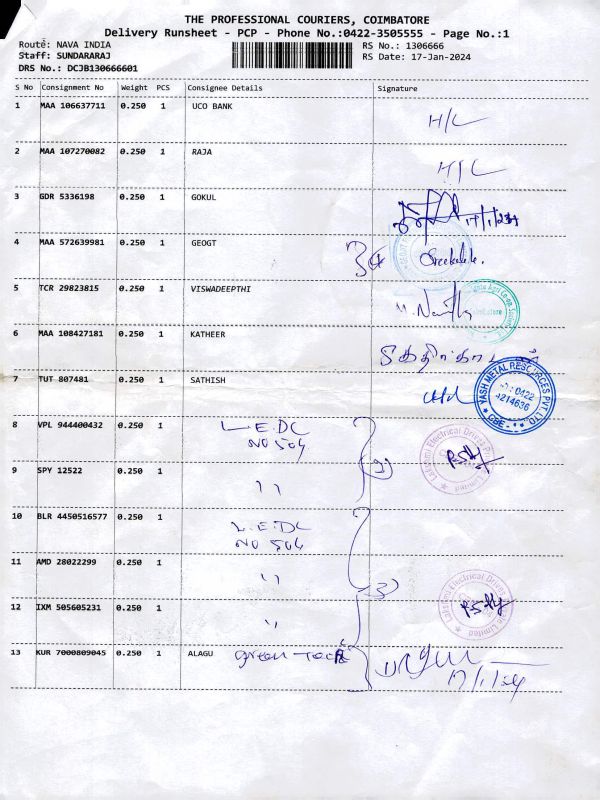 THE PROFESSIONAL COURIERS, COIMBATORE
Delivery Runsheet - PCP - Phone No.:0422-3505555 - Page No.:1
Route: NAVA INDIA
RS No.: 1306666
Staff: SUNDARARAJ
RS Date: 17-Jan-2024
DRS No.: DCJB130666601
S No Consignment No Weight PCS Consignee Details Signature
1 MAA 106637711 0.250 1 UCO BANK
H/L
2 MAA 107270082 0.250 1 RAJA
H/L
3 GDR 5336198 0.250 1 GOKUL
4 MAA 572639981 0.250 1 GEOGT
5 TCR 29823815 0.250 1 VISWADEEPTHI
6 MAA 108427181 0.250 1 KATHEER
7 TUT 807481 0.250 1 SATHISH
YASH METAL RESOURCES PVT. LTD
0422
4214636
CBE
8 VPL 944400432 0.250 1 L.E.DC
NO 504
Lakshmi Electrical Drives Private Limited
9 SPY 12522 0.250 1 ''
10 BLR 4450516577 0.250 1 L.E.DC
NO 504
11 AMD 28022299 0.250 1 ''
12 IXM 505605231 0.250 1 ''
Lakshmi Electrical Drives Private Limited
13 KUR 7000809045 0.250 1 ALAGU
17/1/24